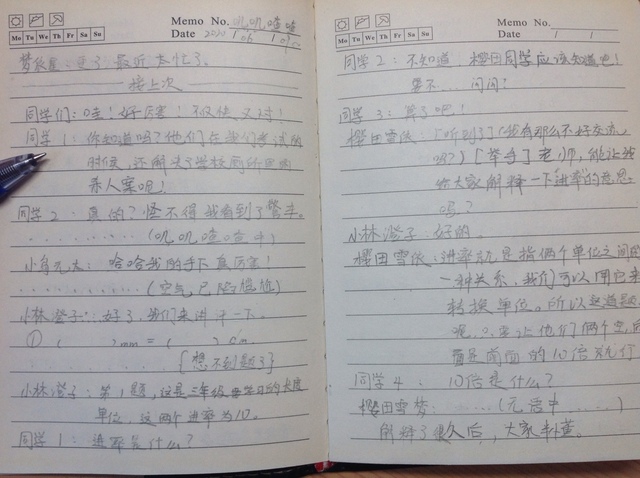 Memo No. 叽叽喳喳
Mo Tu We Th Fr Sa Su
Date 2020 / 06 /
更了,最近太忙了。
接上次
同学们:哇!好厉害!不仅快又对!
同学1:你知道吗?他们在我们考试的
时候,还解决了学校厕所里的
杀人案呢!
同学2:真的?怪不得我看到了警车。
.........(叽叽喳喳中)
小岛元太:哈哈我的手下真厉害!
.........(空气已陷尴尬)
小林澄子:好了,我们来讲评一下。
①( )mm=( )cm.
.........[想不到题了]
小林澄子:第1题,这是三年级学习的长度
单位,这两个进率为10。
同学1:进率是什么?
Memo No.
Mo Tu We Th Fr Sa Su
Date / /
同学2:不知道,樱田同学应该知道吧!
要不...问问?
同学3:算了吧!
樱田雪依:[听到了](我有那么不好交流
吗?)[举手了]老师,能让我
给大家解释一下"进率"的意思
吗?
小林澄子:好的。
樱田雪依:进率就是指俩个单位之间的
一种关系,我们可以用它来
转换单位。所以这道题
呢,只要让他们俩个空,后
面是前面的10倍就行
同学4:10倍是什么?
樱田雪梦:......(无语中......)
解释了很久后,大家才懂。